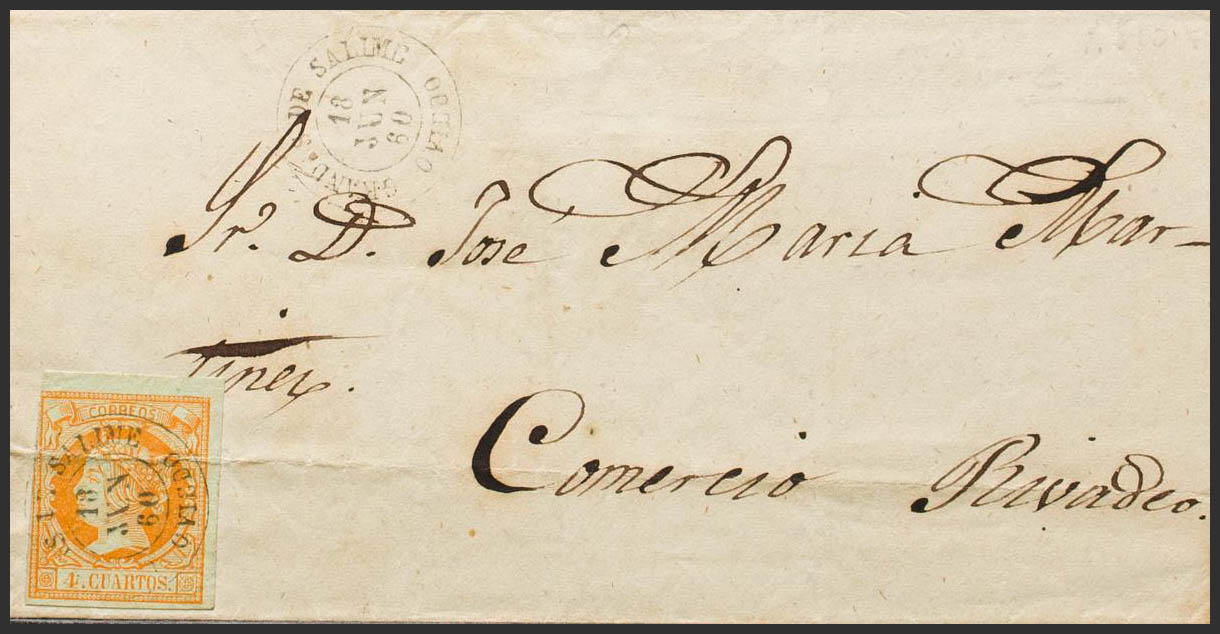 DE SALIME OBIEDO
18
JUN
60
Sr. D. Jose Maria Mar-
tinez.
Comercio Rivadeo.
CORREOS
SALIME
18
JUN
60
4 CUARTOS.